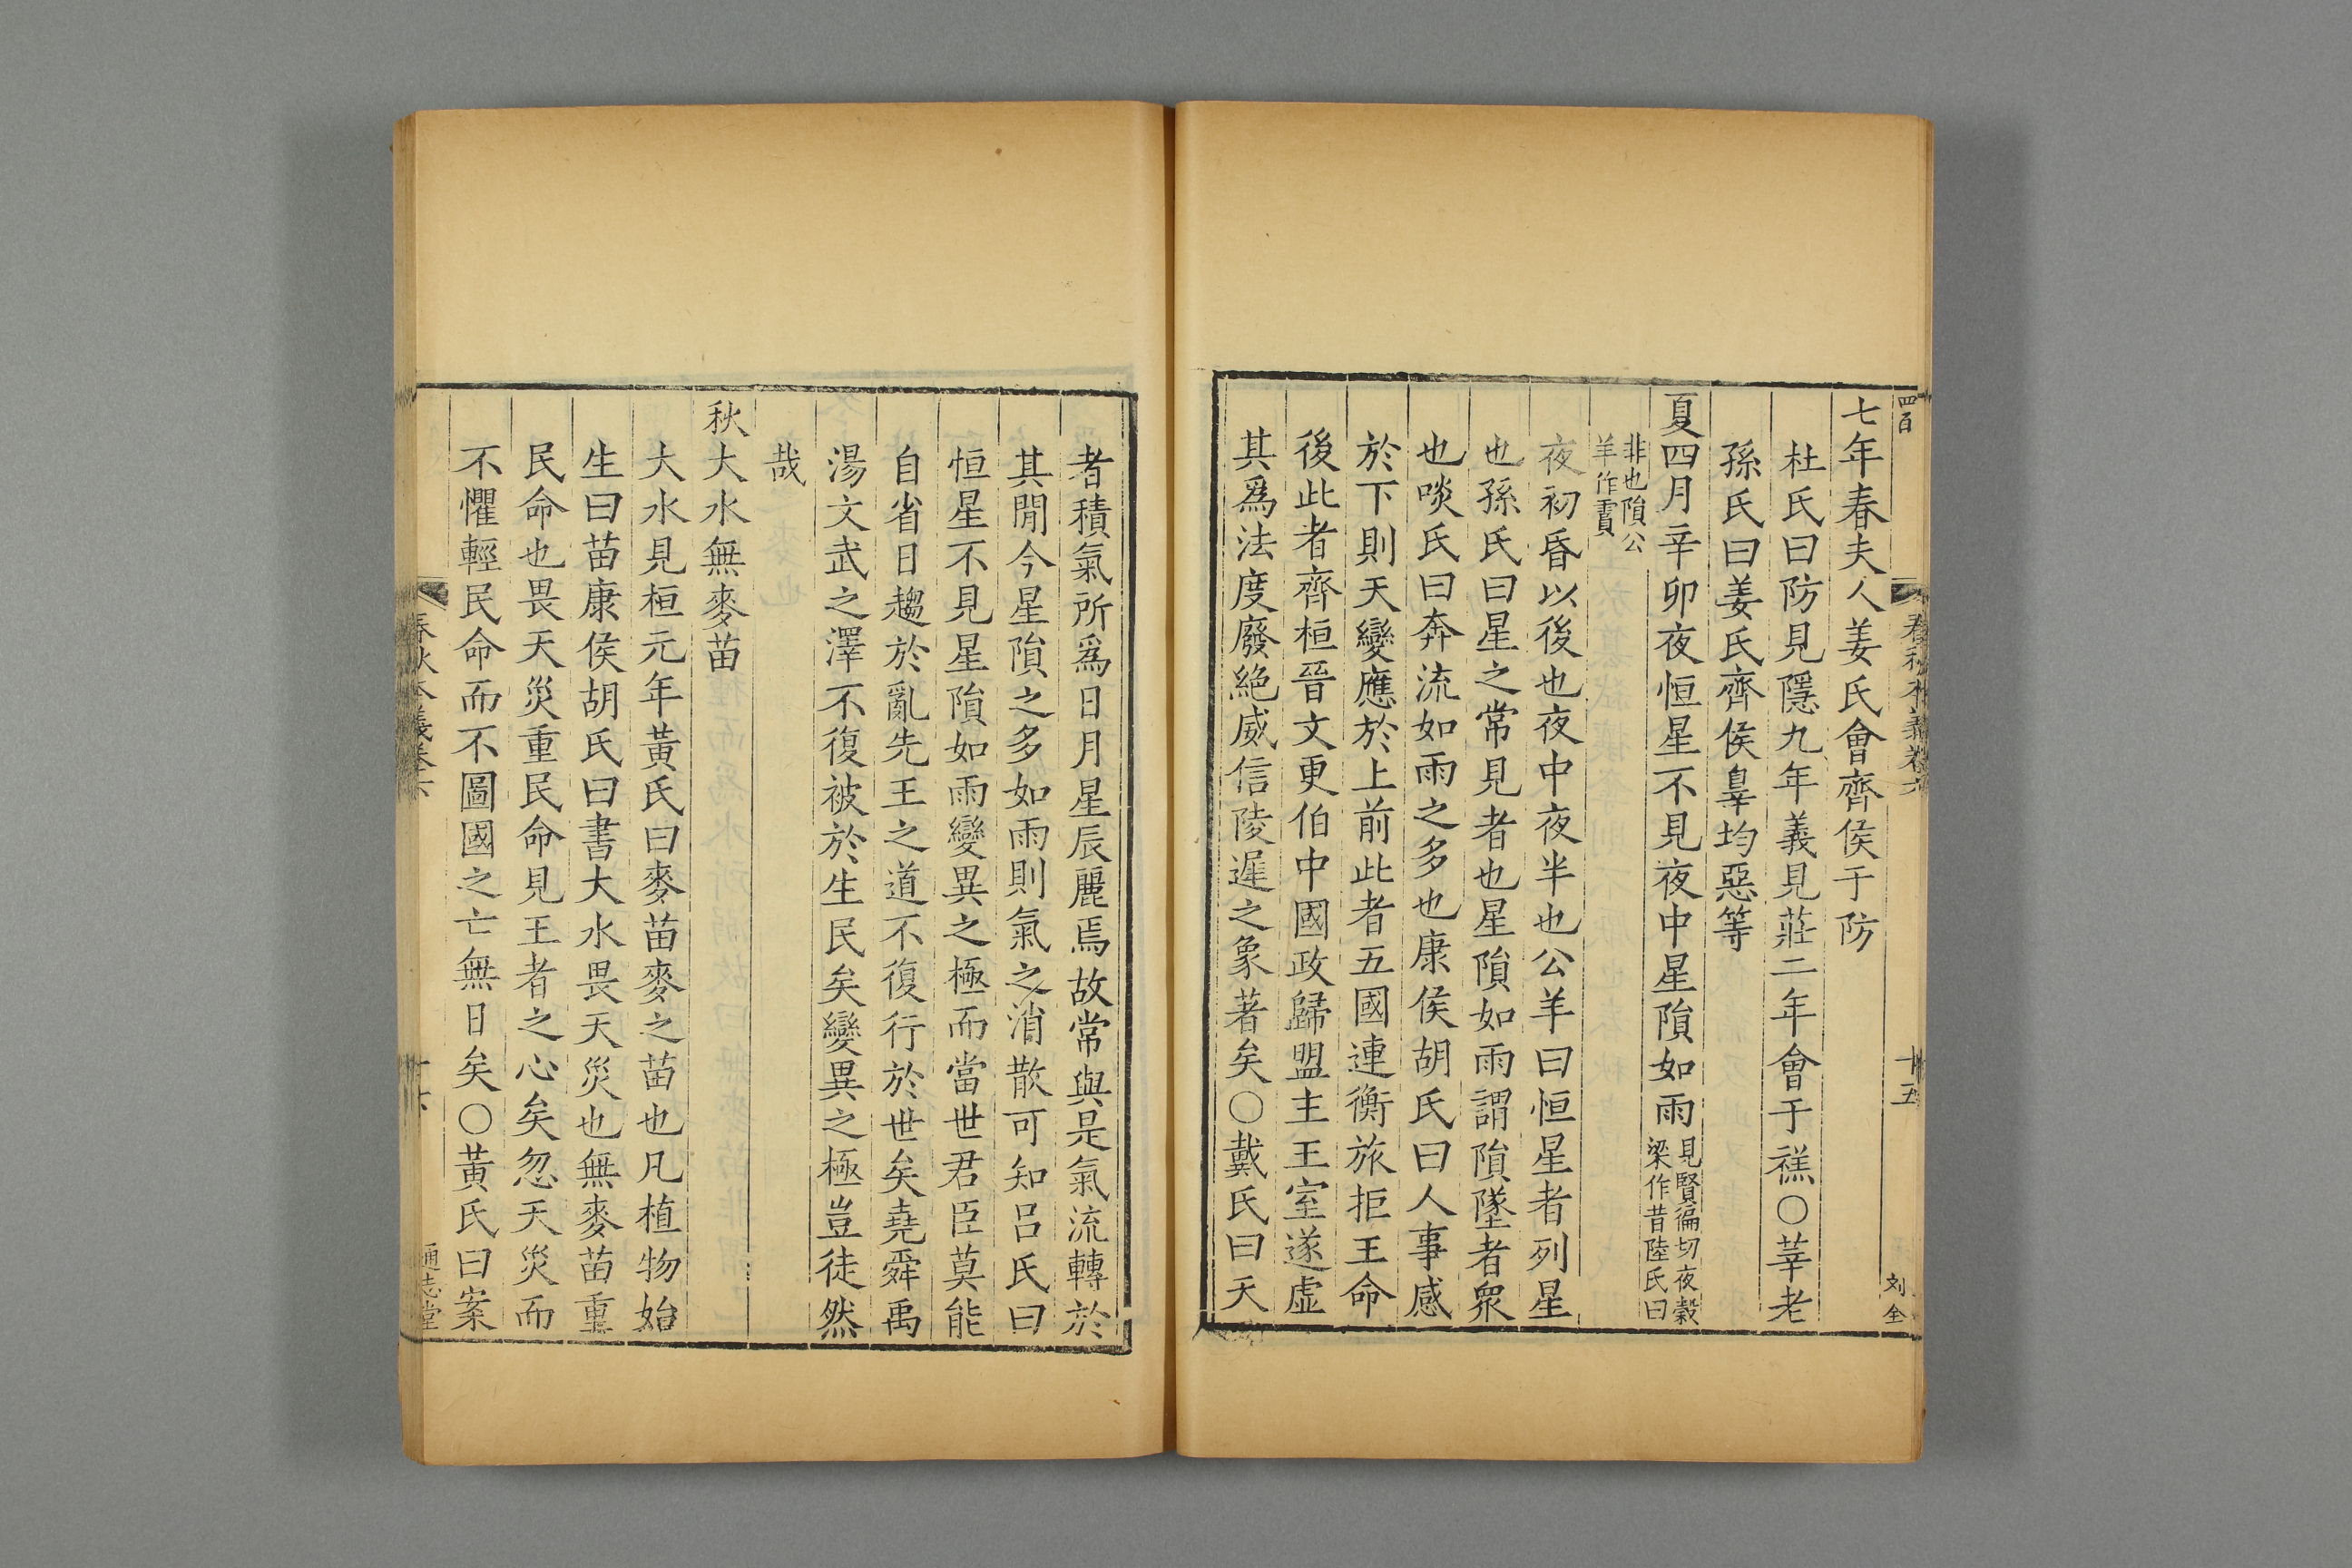 四百
春秋本義卷六
十五
刘全
七年春夫人姜氏會齊侯于防
杜氏曰防見隱九年義見莊二年會于禚○莘老
孫氏曰姜氏齊侯辠均惡等
夏四月辛卯夜恒星不見夜中星隕如雨見賢徧切夜穀
梁作昔陸氏曰
非也隕公
羊作霣
夜初昏以後也夜中夜半也公羊曰恒星者列星
也孫氏曰星之常見者也星隕如雨謂隕墜者衆
也啖氏曰奔流如雨之多也康侯胡氏曰人事感
於下則天變應於上前此者五國連衡旅拒王命
後此者齊桓晉文更伯中國政歸盟主王室遂虛
其爲法度廢絶威信陵遲之象著矣○戴氏曰天
者積氣所爲日月星辰麗焉故常與是氣流轉於
其閒今星隕之多如雨則氣之消散可知呂氏曰
恒星不見星隕如雨變異之極而當世君臣莫能
自省日趨於亂先王之道不復行於世矣堯舜禹
湯文武之澤不復被於生民矣變異之極豈徒然
哉
秋大水無麥苗
大水見桓元年黃氏曰麥苗麥之苗也凡植物始
生曰苗康侯胡氏曰書大水畏天災也無麥苗重
民命也畏天災重民命見王者之心矣忽天災而
不懼輕民命而不圖國之亡無日矣○黃氏曰案
春秋本義卷六
十六
通志堂